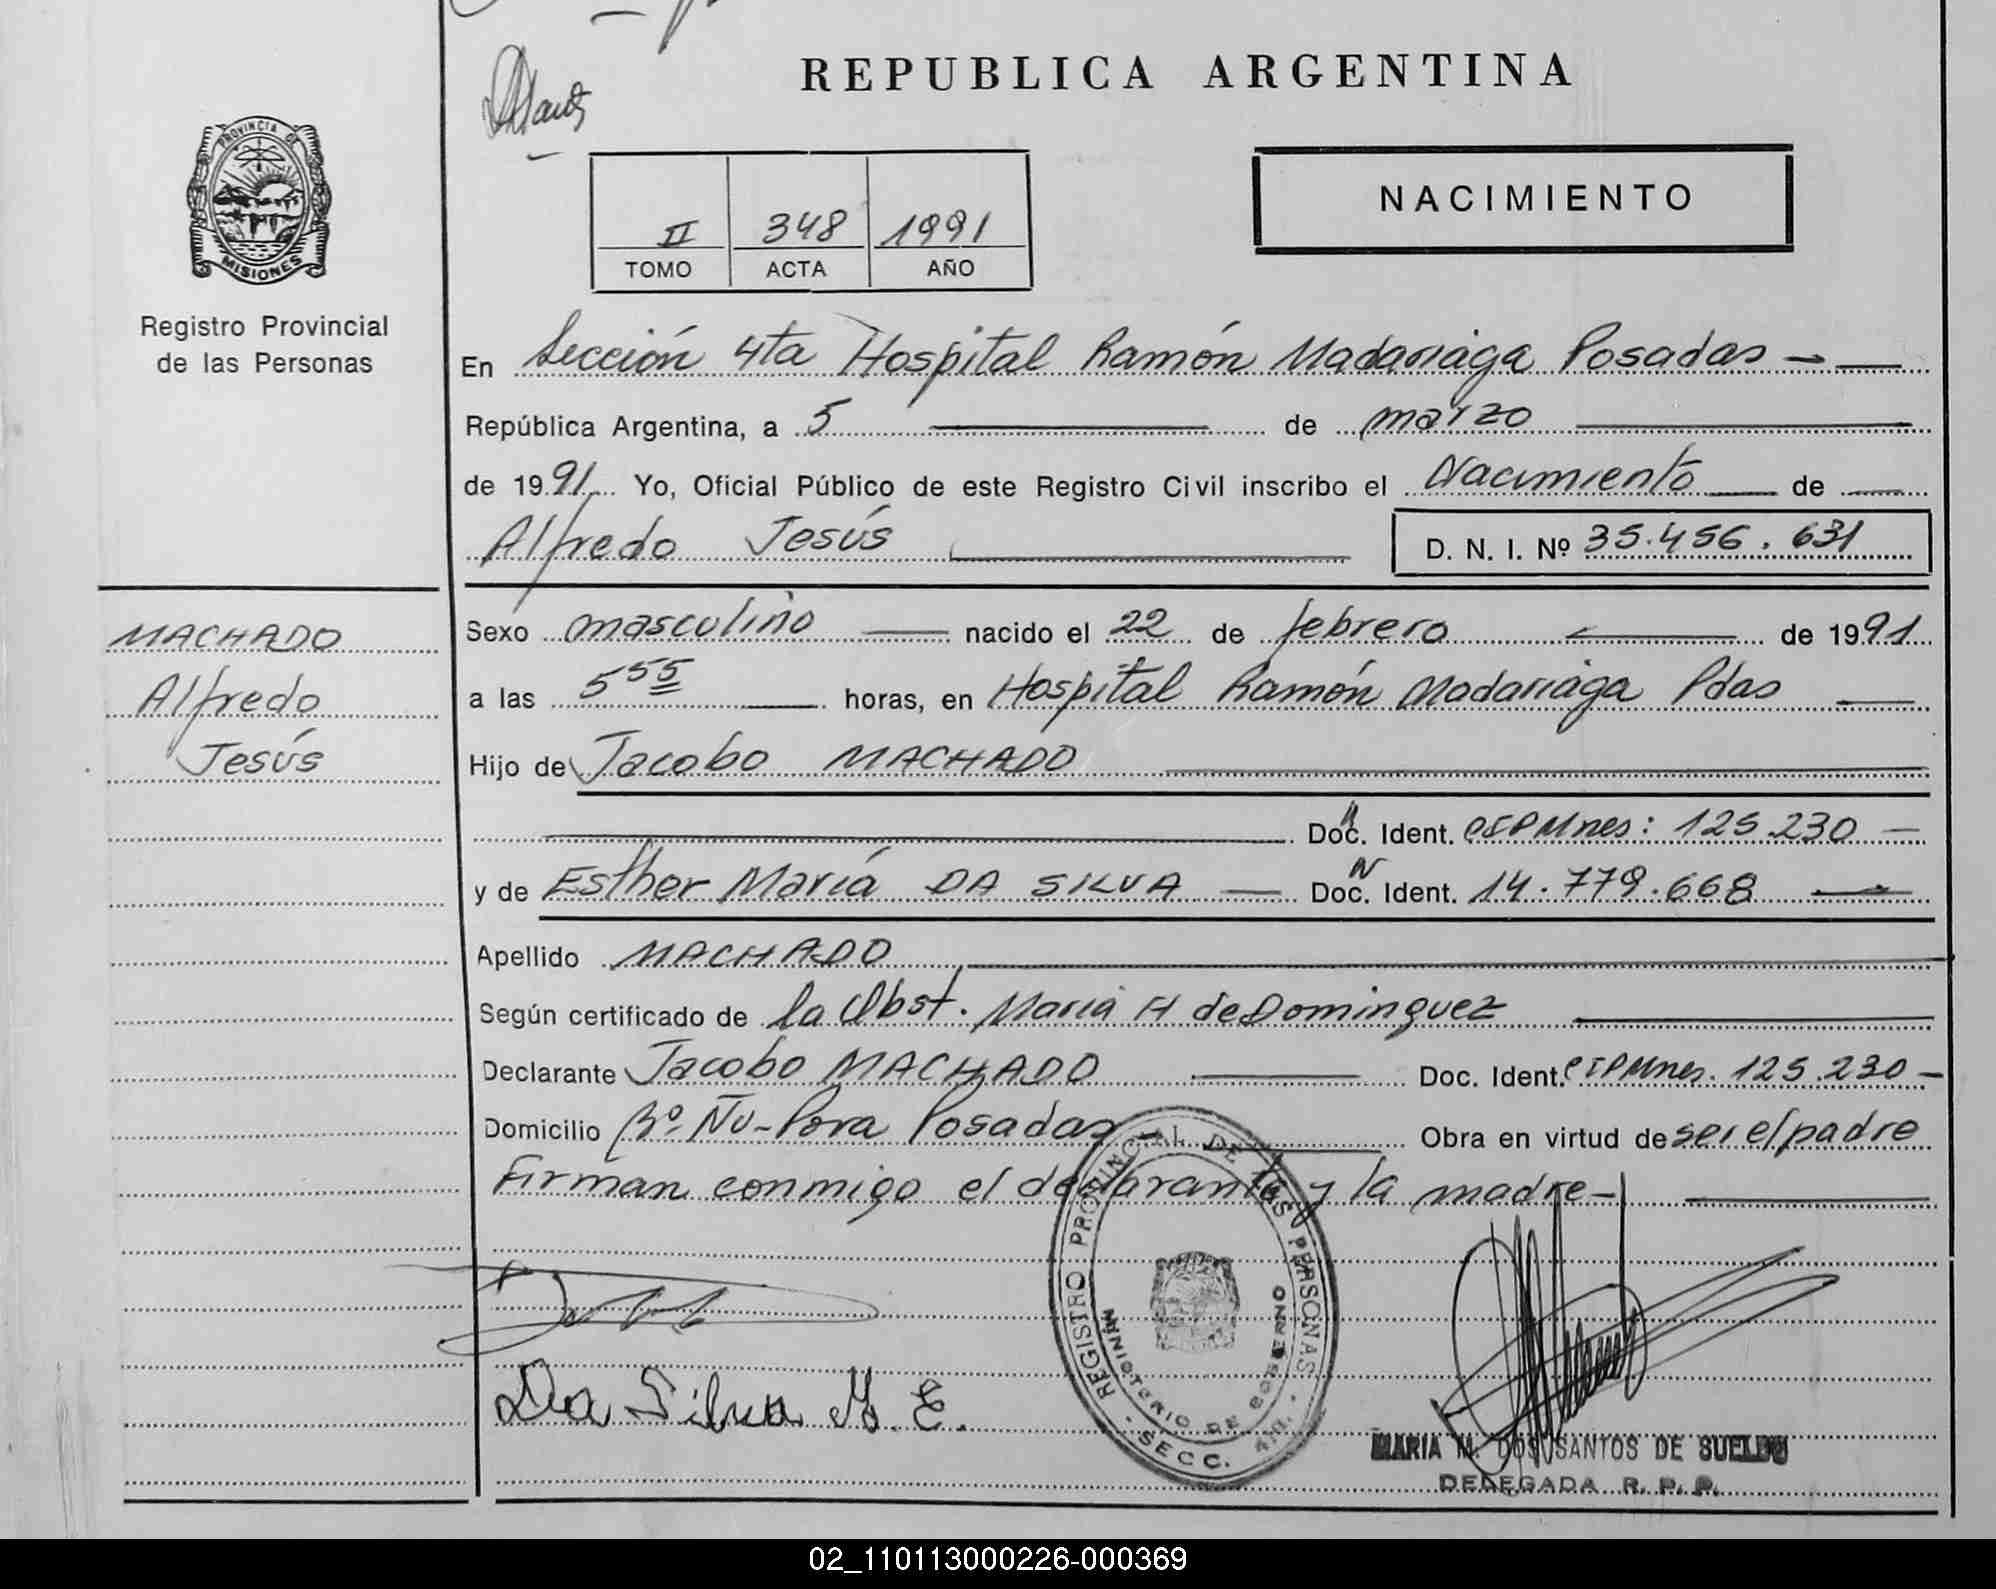 REPUBLICA ARGENTINA
PROVINCIA DE MISIONES
Registro Provincial
de las Personas
NACIMIENTO
II 348 1991
TOMO ACTA AÑO
En Sección 4ta Hospital Ramón Madariaga Posadas
República Argentina, a 5 de marzo
de 1991 Yo, Oficial Público de este Registro Civil inscribo el Nacimiento de
Alfredo Jesús D. N. I. Nº 35.456.631
MACHADO
Alfredo
Jesús
Sexo masculino nacido el 22 de febrero de 1991
a las 5 55 horas, en Hospital Ramón Madariaga Pdas
Hijo de Jacobo MACHADO
Doc. Ident. CIPMnes: 125.230
y de Esther María DA SILVA Doc. Ident. 14.779.668
Apellido MACHADO
Según certificado de la Obst. María H de Dominguez
Declarante Jacobo MACHADO Doc. Ident. CIPMnes. 125.230
Domicilio Bº. Ñu-Pora Posadas Obra en virtud de ser el padre
Firman conmigo el declarante y la madre
REGISTRO PROVINCIAL DE LAS PERSONAS
MINISTERIO DE GOBIERNO
SECC. 4ta.
Da Silva M. E.
MARIA M. DOS SANTOS DE SUELDO
DELEGADA R. P. P.
02_110113000226-000369